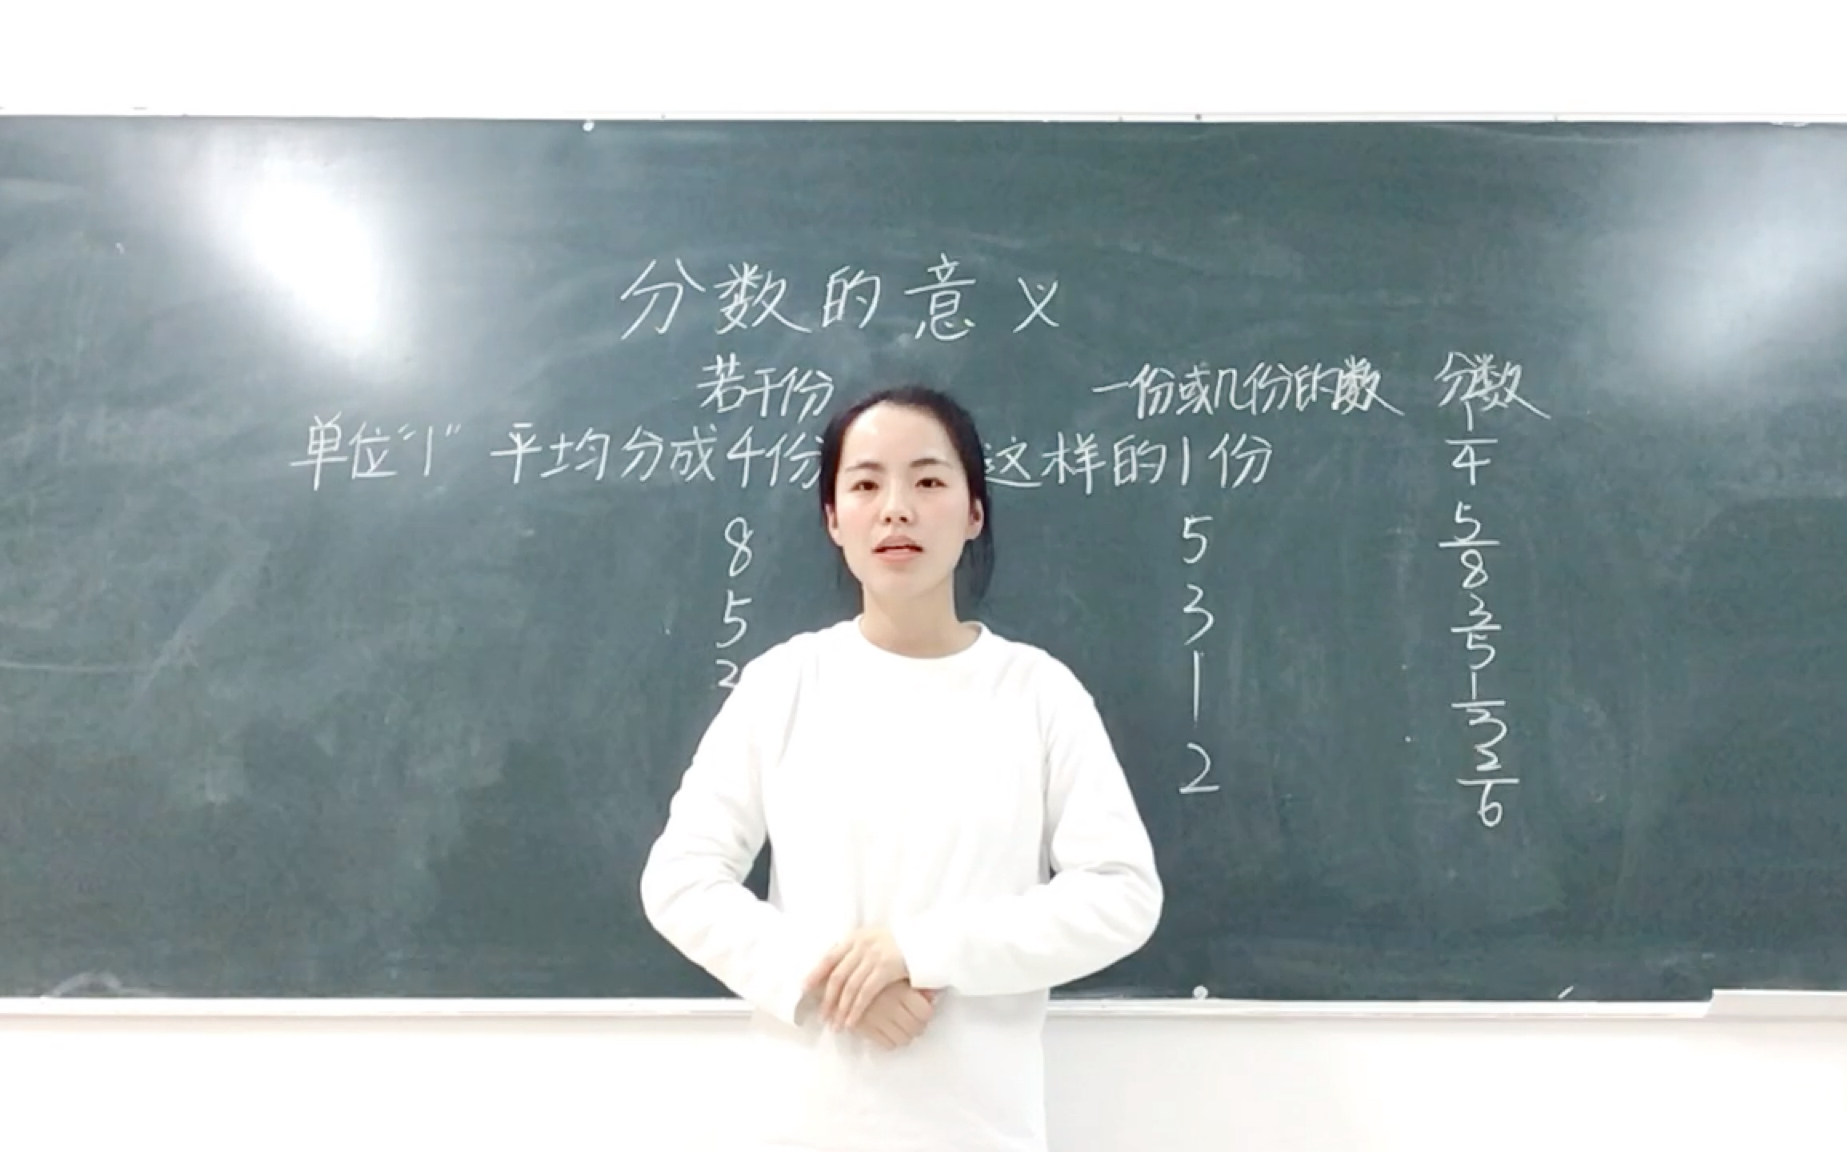 分数的意义
若干份 一份或几份的数 分数
单位“1” 平均分成4份 这样的1份 1/4
8 5 5/8
5 3 3/5
2 1 1/2
2 2/6